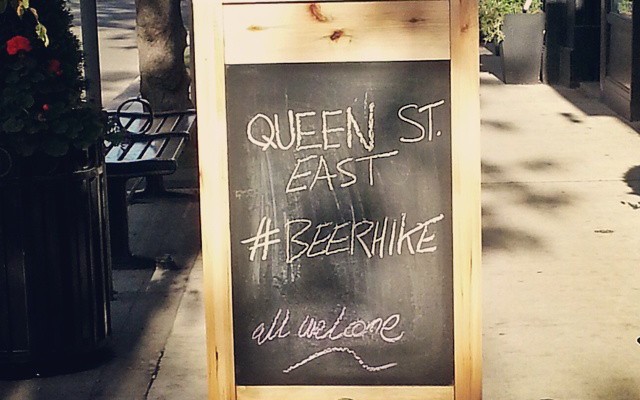 QUEEN ST.
EAST
#BEERHIKE
all welcome